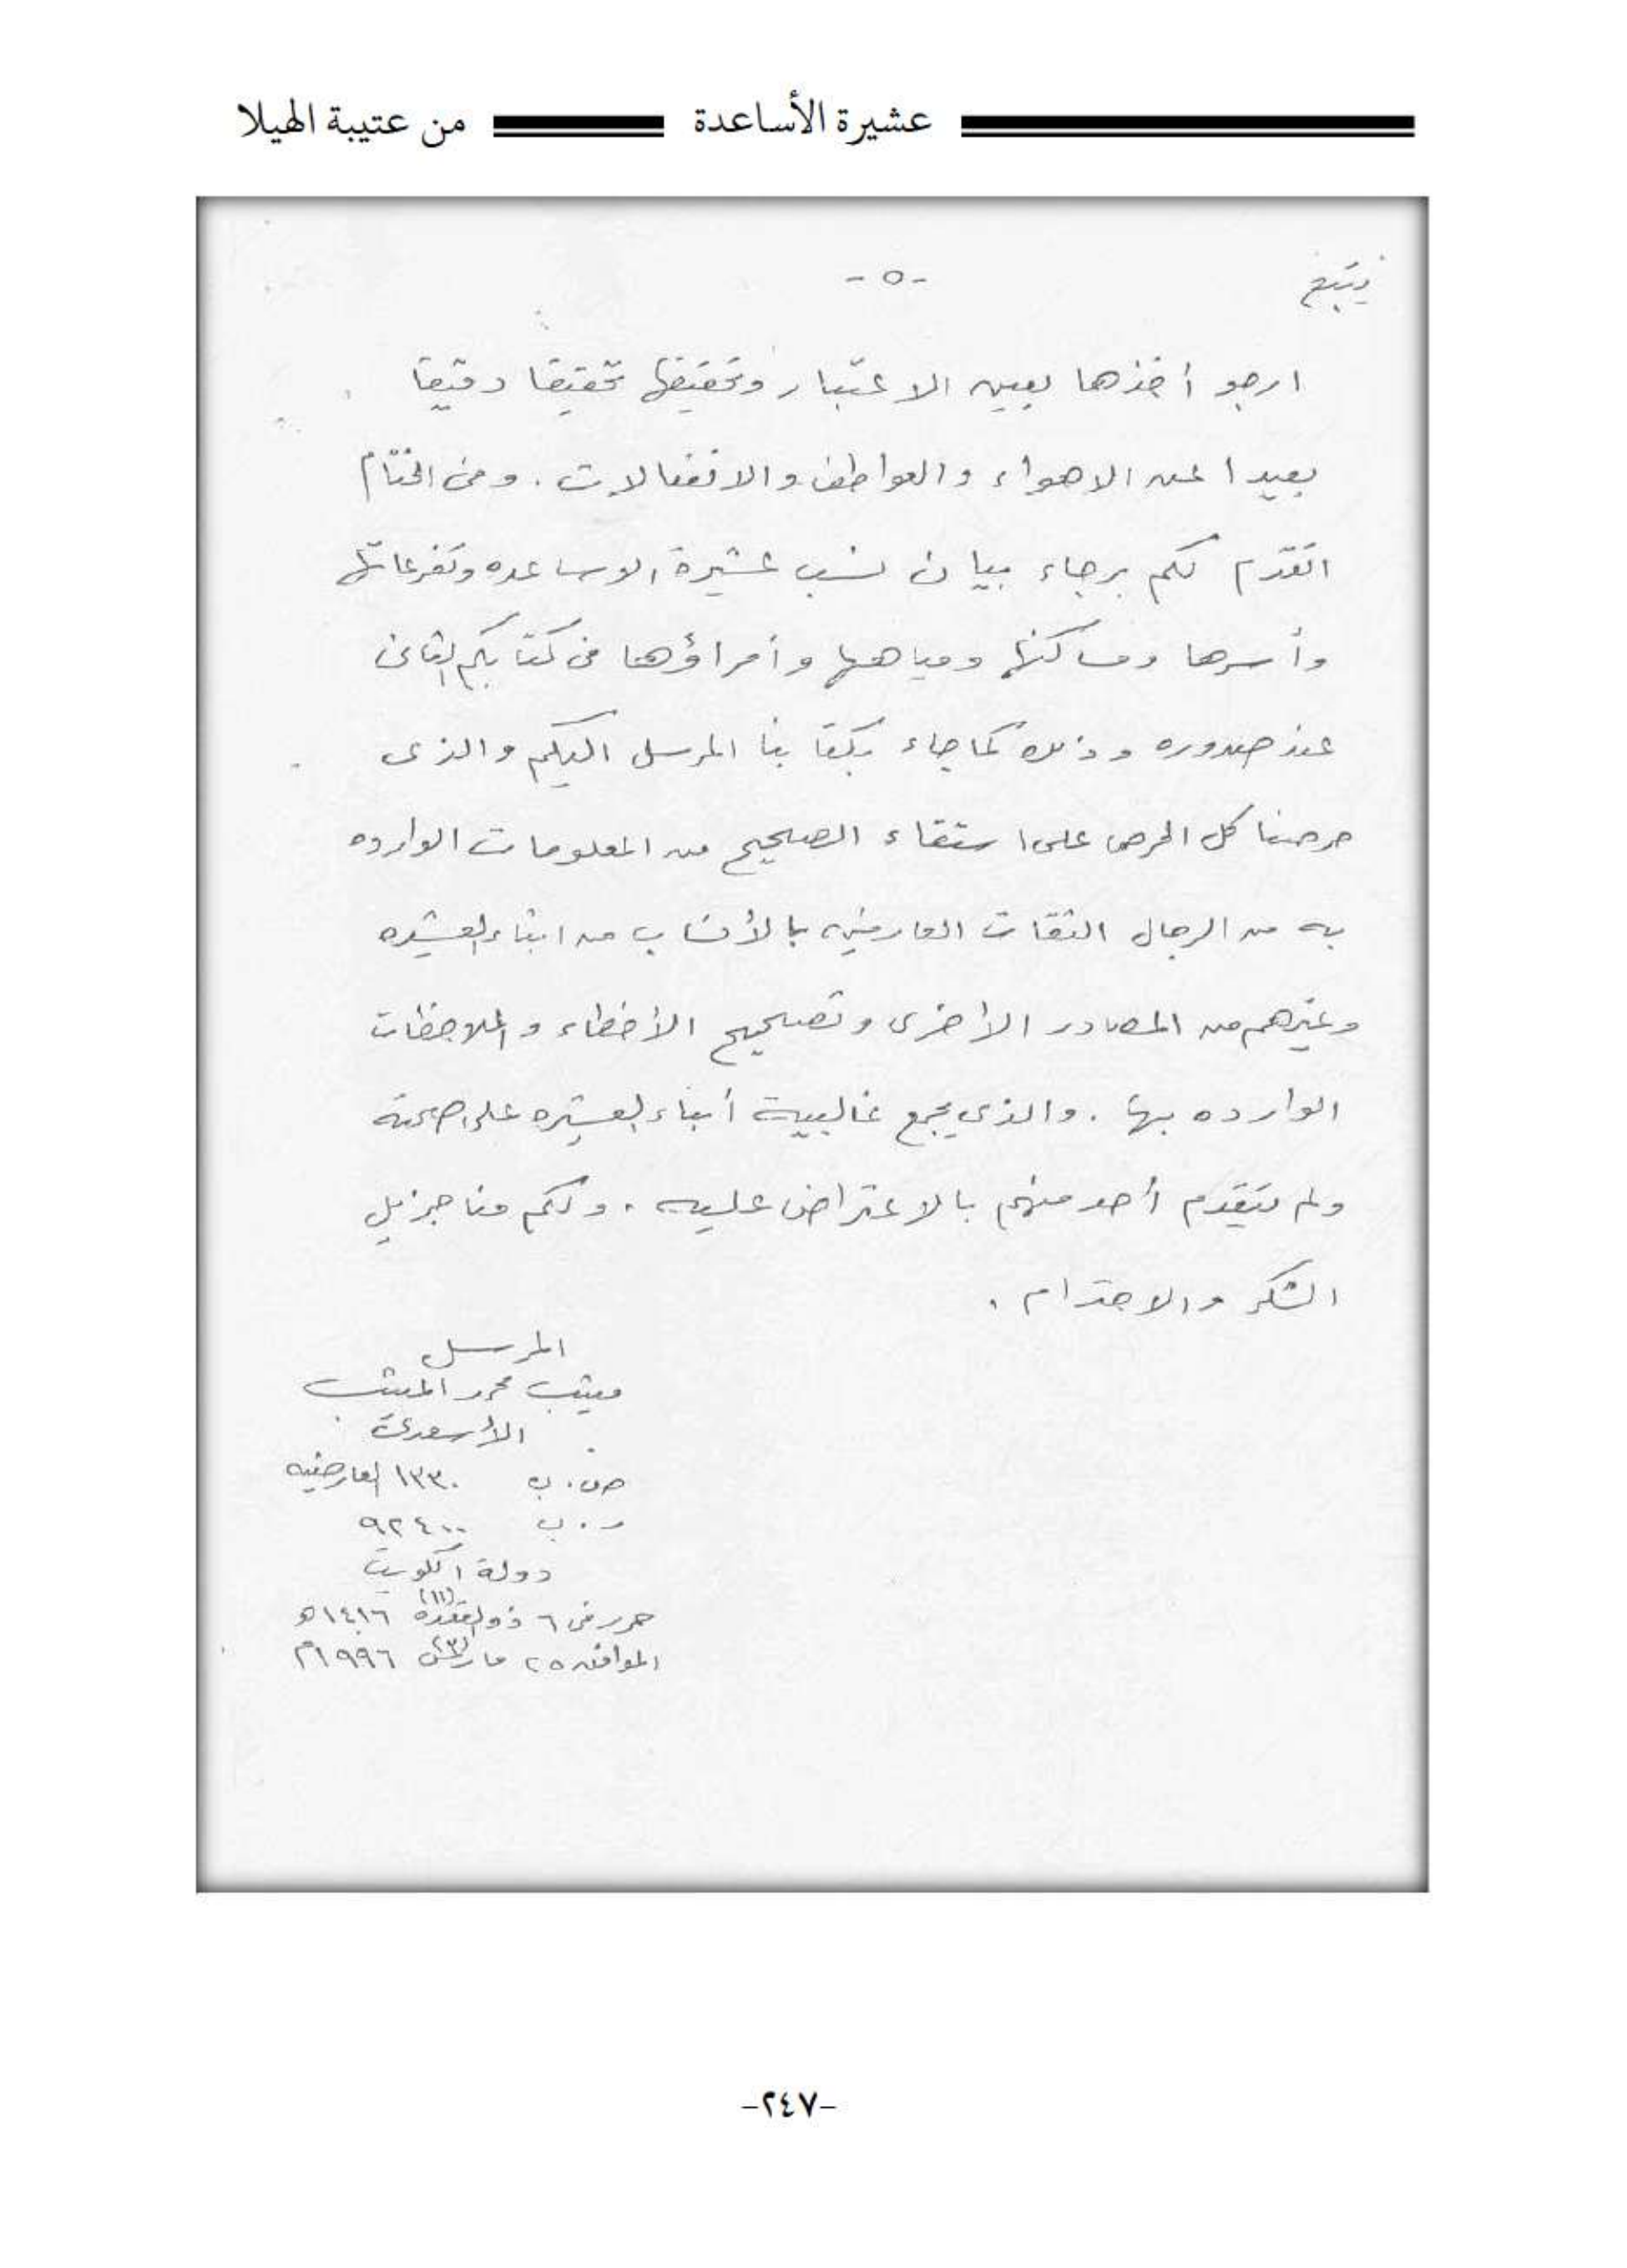 عشيرة الأساعدة من عتيبة الهيلا
يتبع
-٥-
ارجو أخذها بعين الاعتبار وتحقيقها تحقيقا دقيقا
بعيدا عن الاهواء والعواطف والانفعالات . وفى الختام
اتقدم لكم برجاء بيان نسب عشيرة الاساعده وتفرعاتها
وأسرها ومساكنها ومياهها وأمراؤها فى كتابكم الثانى
عند صدوره وذلك كما جاء بكتابنا المرسل اليكم والذى
حرصنا كل الحرص على استقاء الصحيح من المعلومات الوارده
به من الرجال الثقات العارفين بالأنساب من ابناء العشيره
وغيرهم من المصادر الأخرى وتصحيح الأخطاء والملاحظات
الوارده بها . والذى يجمع غالبية أبناء العشيره على صحته
ولم يتقدم أحد منهم بالاعتراض عليه . ولكم منا جزيل
الشكر والاحترام .
المرسل
ميثب محمد الميثب
الأسعدى
ص . ب ١٣٣٠ العارضيه
ر . ب ٩٢٤٠٠
دولة الكويت
حرر فى ٦ ذو القعده (١١) ١٤١٦هـ
الموافق ٢٥ مارس (٣) ١٩٩٦م
-٢٤٧-